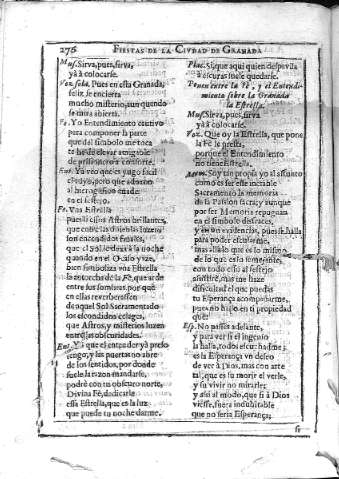 276 FIESTAS DE LA CIVDAD DE GRANADA
Mus. Sirva, pues, sirva
yà à colocarse.
Voz sola. Pues en esta Granada,
feliz se encierra
mucho misterio, aun quando
se mira abierta.
Fe. Yo Entendimiento cautivo
para componer la parte
que del simbolo me toca
te he de llevar amigable
de prisionero consorte.
Ent. Yà veo que es yugo facil
el tuyo, pero que adorno
al
en el festejo.
Fe. Vna Estrella
puesta entre Astros brillantes,
que entre las tinieblas luzen
son encendidos fanales,
que el Sol le dexa à la noche
quando en el Ocaso yaze,
bien simboliza vna Estrella
la antorcha de la Fè, que arde
entre sus sombras, por què
en ellas reverberassen
de aquel Sol Sacramentado
los escondidos celages,
que Astros, y misterios luzen
entre las obscuridades.
Ent. Yà que el entender yà preso
tengo, y las puertas no abre
de los sentidos, por donde
suele la razon mandarse,
podrè con tu obscuro norte,
Divina Fè, dedicarla
essa Estrella, que es la luz
que puede tu noche darme.
Plac. Si, que aqui quien despavila
à escuras suele quedarse.
Ponen entre la Fè, y el Entendi-
miento sobre la Granada
la Estrella.
Mus. Sirva, pues, sirva
yà à colocarse.
Voz. Que oy la Estrella, que pone
la Fè le presta,
porque el Entendimiento
no tiene Estrella.
Mem. Soy tan propia yo al assunto
como es ser este increible
Sacramento la memoria
de la Passion sacra; y aunque
por ser Memoria repugnan
en el simbolo disfraces,
y en vn evidencias, pues se halla
para poder
mas aquello que es lo mismo
de lo que es lo semejante,
con todo esso al festejo
assistirè, mas me haze
dificultad el que puedas
tu Esperança acompañarme,
pues no hallo en ti propiedad
que:
Esp. No passes adelante,
y para ver si el ingenio
la halla, todos escuchadme;
es la Esperança vn deseo
de ver à Dios, mas con arte
tal, que es su morir el verle,
y su vivir no mirarle;
y assi al modo, que si à Dios
viesse, fuera indubitable
que no seria Esperança;
si